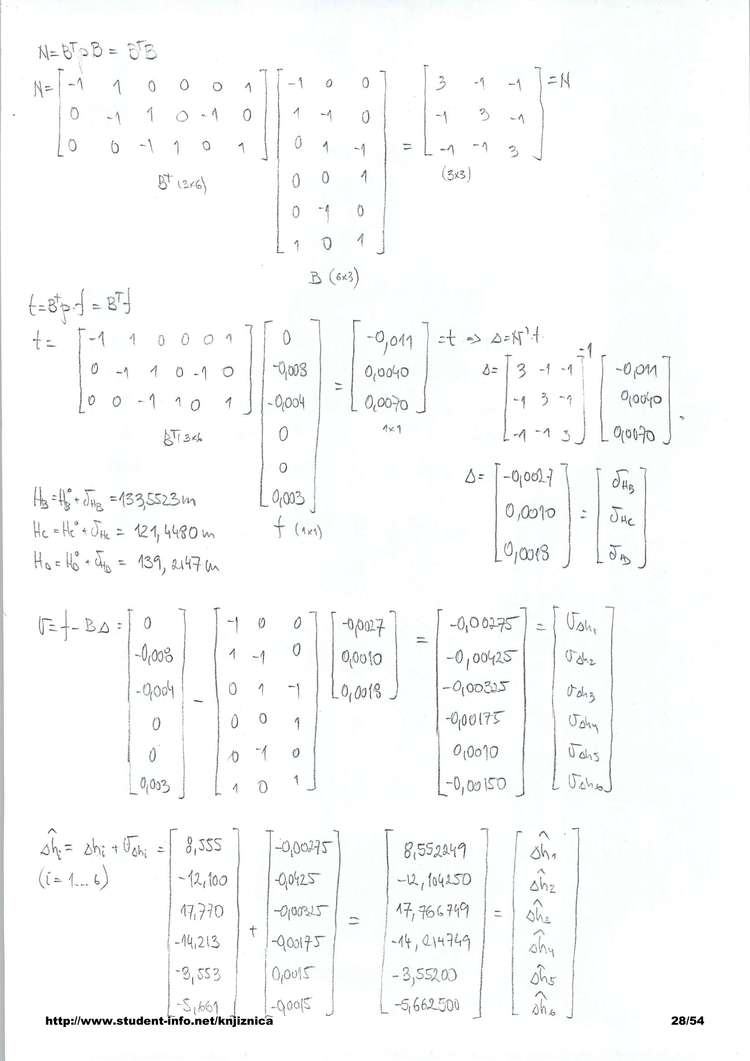 N = BᵀpB = BᵀB
N = [-1 1 0 0 0 1; 0 -1 1 0 -1 0; 0 0 -1 1 0 1] [-1 0 0; 1 -1 0; 0 1 -1; 0 0 1; 0 -1 0; 1 0 1] = [3 -1 -1; -1 3 -1; -1 -1 3] = N
Bᵀ (3x6)
B (6x3)
(3x3)
t = Bᵀp·f = Bᵀf
t = [-1 1 0 0 0 1; 0 -1 1 0 -1 0; 0 0 -1 1 0 1] [0; -0,008; -0,004; 0; 0; 0,003] = [-0,011; 0,0040; 0,0070] = t => Δ = N⁻¹t
Bᵀ(3x6
f (1x1)
1x1
Δ = [3 -1 -1; -1 3 -1; -1 -1 3]⁻¹ [-0,011; 0,0040; 0,0070]
Δ = [-0,0027; 0,0010; 0,0018] = [δHB; δHC; δHD]
HB = HB° + δHB = 133,5523 m
HC = HC° + δHC = 121,4480 m
HD = HD° + δHD = 139,2147 m
v = f - BΔ = [0; -0,008; -0,004; 0; 0; 0,003] - [-1 0 0; 1 -1 0; 0 1 -1; 0 0 1; 0 -1 0; 1 0 1] [-0,0027; 0,0010; 0,0018] = [-0,00275; -0,00425; -0,00325; -0,00175; 0,0010; -0,00150] = [vΔh1; vΔh2; vΔh3; vΔh4; vΔh5; vΔh6]
Δĥi = Δhi + vΔhi = [8,555; -12,100; 17,770; -14,213; -3,553; -5,661] + [-0,00275; -0,0425; -0,00325; -0,00175; 0,0015; -0,0015] = [8,552249; -12,104250; 17,766749; -14,214749; -3,55200; -5,662500] = [Δĥ1; Δĥ2; Δĥ3; Δĥ4; Δĥ5; Δĥ6]
(i = 1... 6)
http://www.student-info.net/knjiznica
28/54